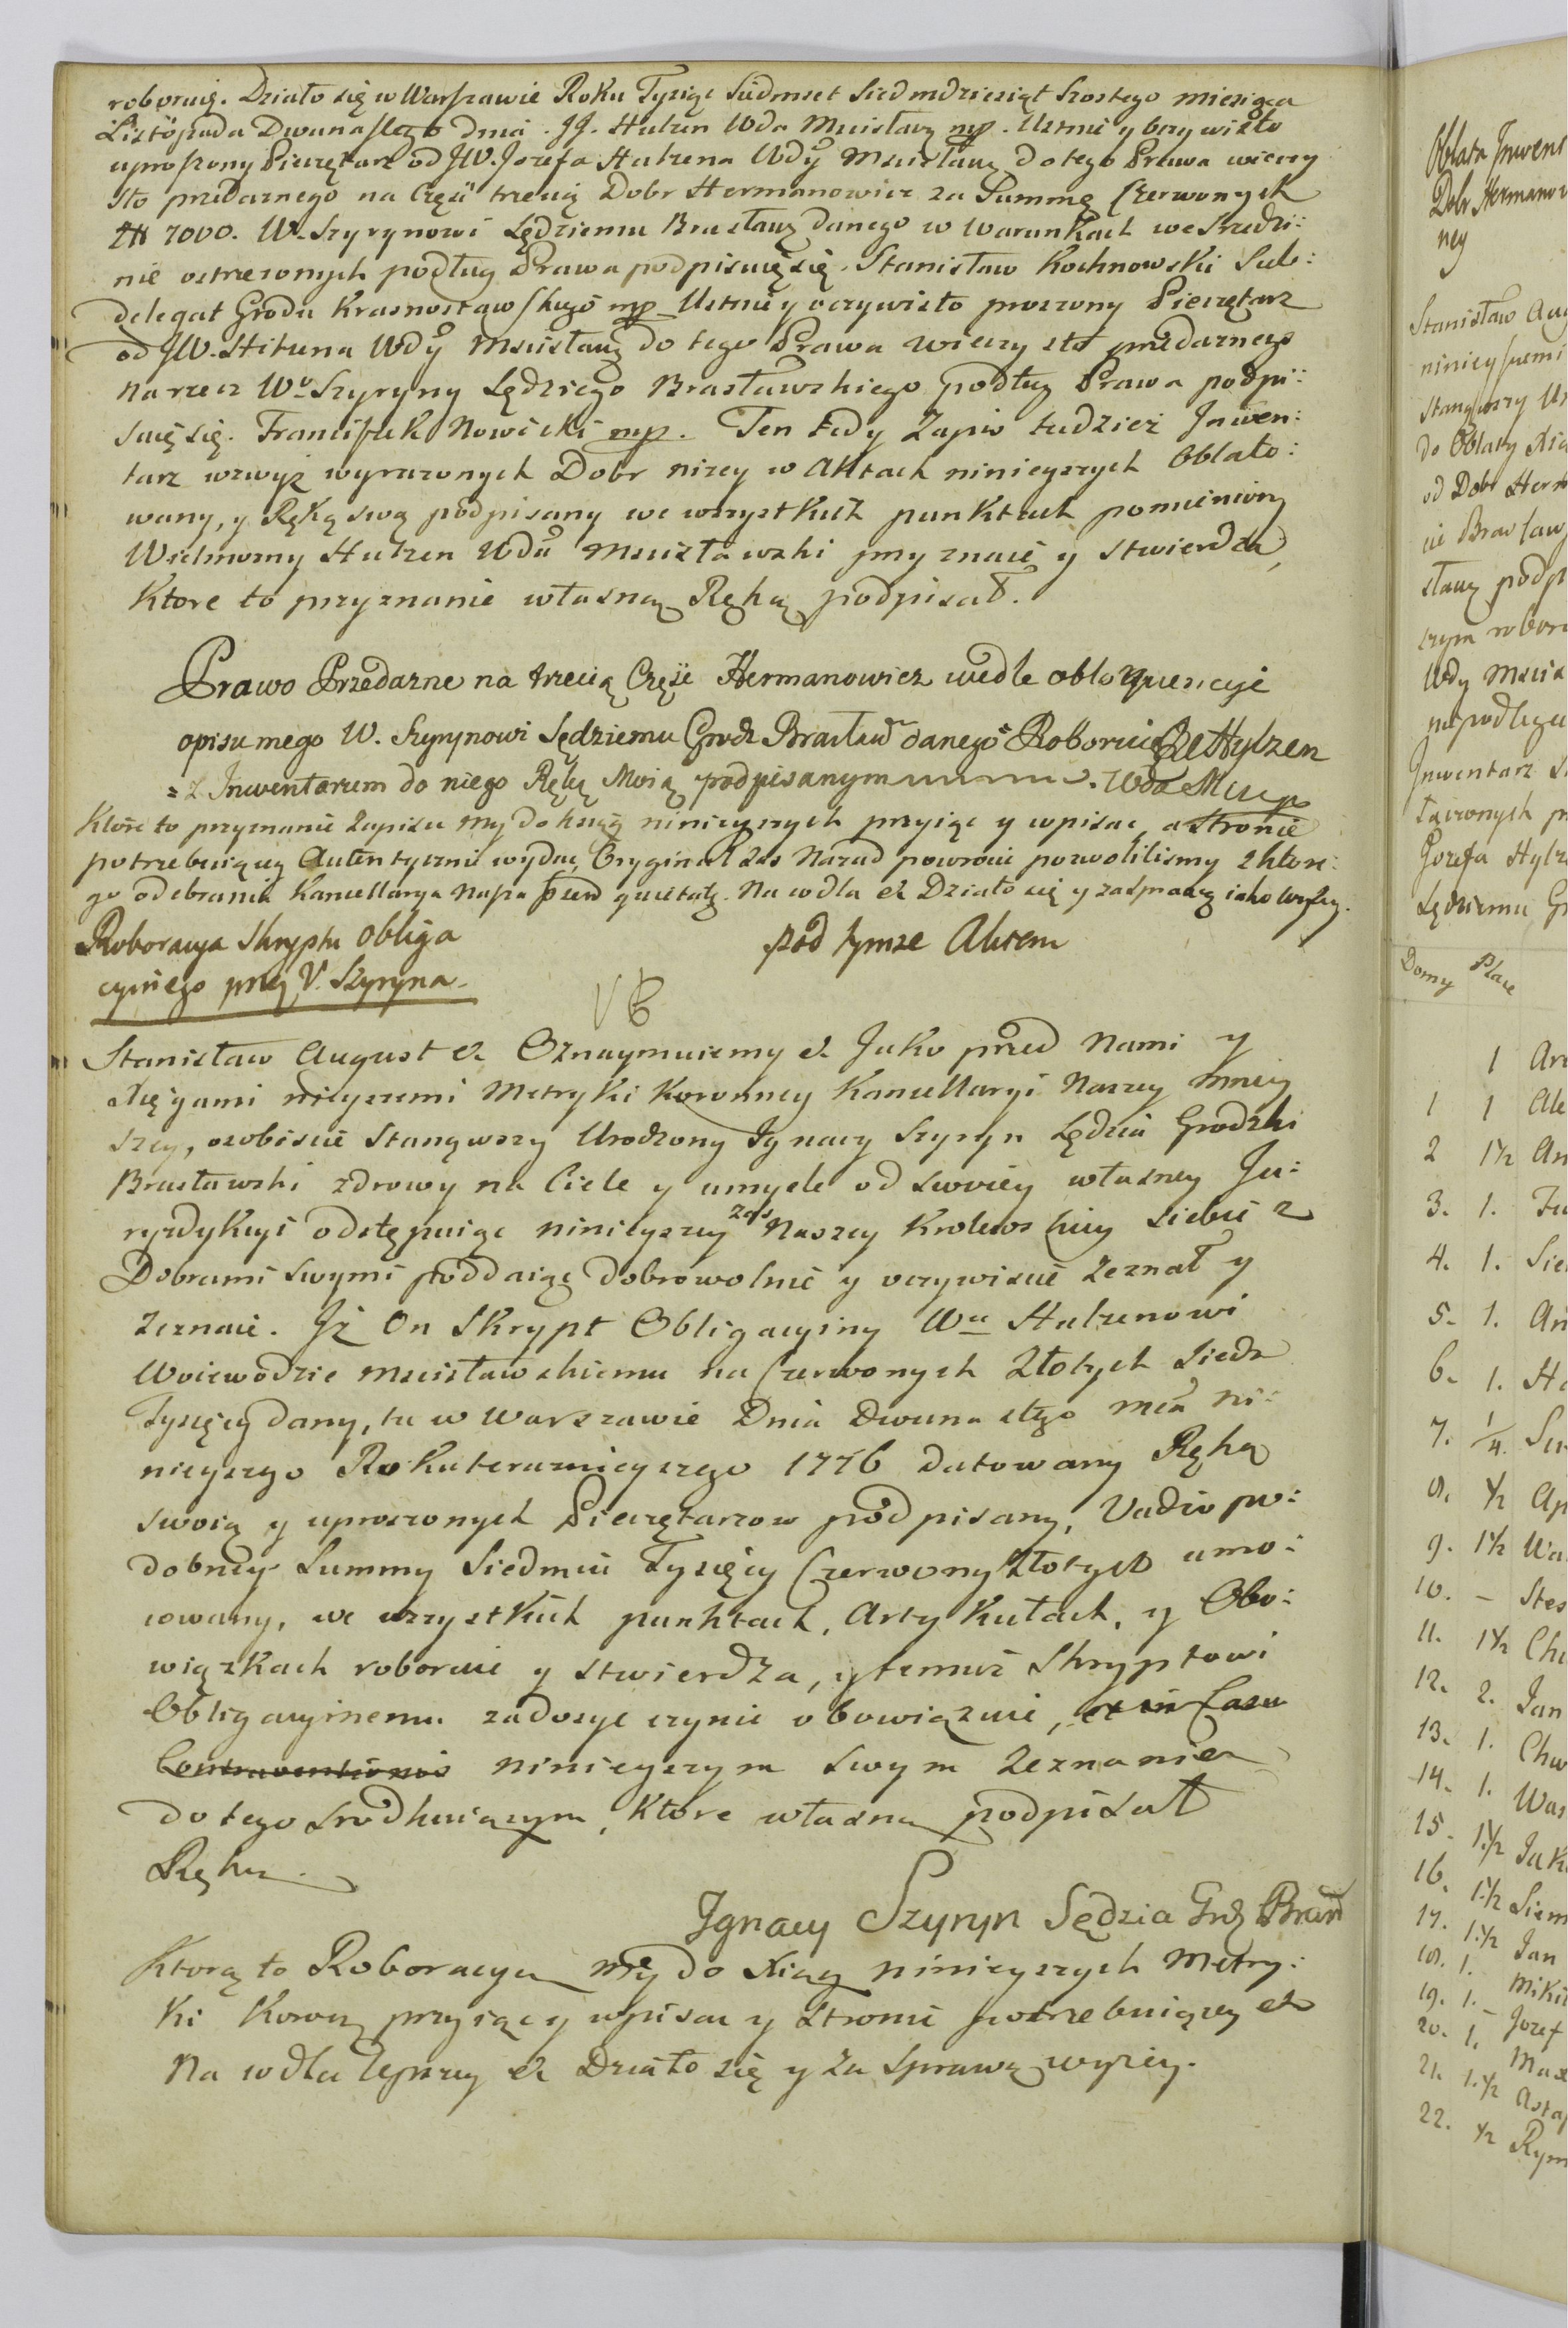 roboruię. Działo się w Warszawie Roku Tysiąc Siedmset Siedmdziesiąt Szostego miesiąca
Listopada Dwunastego dnia. JJ. Hulzen Wda Mscisławg mp. Ustnie y oczywisto
uproszony Pieczętarz od JW. Jozefa Hulzena Wdy Mscisławg do tego Prawa wieczy
sto przedaznego na Część trzecią Dobr Hermanowicz za Summę Czerwonych
Zł 7000. W. Szyrynowi Sędziemu Brasławg danego w warunkach we Srzedzi:
nie ostrzezonych podług Prawa podpisuię się. Stanisław Kochnowski Sub:
delegat Grodu Krasnostawskiego mp Ustnie y oczywisto proszony Pieczętarz
od JW. Hilzena Wdy Mscisławg do tego Prawa wieczysto przedaznego
na rzecz Wo Szyryny Sędziego Brasławskiego podług Prawa podpi:
suię się. Franciszek Nowicki mp. Ten tedy Zapis tudziez Inwen:
tarz wzwyż wyrazonych Dobr nizey w Aktach ninieyszych Oblato:
wany, y Ręką swą podpisany we wszystkich punktach pomieniony
Wielmozny Hulzen Wda Mscisławski przyznaie y stwierdza,
Ktore to przyznanie własną Ręką podpisał.
Prawo Przedazne na trzecią Część Hermanowicz wedle obloquencyi
opisu mego W. Szyrynowi Sędziemu Grodz Brasław danego Roboruię Hylzen
z Inwentarzem do niego Ręką Moią podpisanym. Wda Mscp
Ktore to przyznanie Zapisu my do ksiąg ninieyszych przyiąć y wpisać, a stronie
potrzebuiącey Autentycznie wydać, Oryginał zas Nazad powrocić pozwolilismy z ktore:
go odebrania Kancellarya Nasza kwituię. Na co dla et Działo się y za sprawą iako wyżey.
Roboracya Skryptu Obliga
cyinego przez V. Szyryna
pod tymze Aktem
Stanisław August et Oznaymuiemy et Jako przed Nami y
Xięgami nieyszemi Metryki Koronney Kancellaryi Naszey mniey
szey, osobiscie stanąwszy Urodzony Ignacy Szyryn Sędzia Grodzki
Brasławski zdrowy na Ciele y umysle od swoiey własney Ju:
ryzdykcyi odstępuiąc ninieyszey zas Naszey Krolewskiey siebie z
Dobrami swymi poddaiąc dobrowolnie y oczywiscie zeznał y
zeznaie. Iż On Skrypt Obligacyiny Wu Hulzenowi
Woiewodzie Mscisławskiemu na Czerwonych Złotych Siedm
Tysięcy dany, tu w Warszawie Dnia Dwunastego mca ni:
nieyszego Roku teraznieyszego 1776 datowany Ręką
swoią y uproszonych Pieczętarzow podpisany, Vadio po:
dobney Summy Siedmiu Tysięcy Czerwony Złotych umo:
cowany, we wszystkich punktach, Artykułach, y Obo:
wiązkach roboruie y stwierdza, y temuż Skryptowi
Obligacyinemu zadosyc czynic obowiązuie, et in Casu
Contraventionis ninieyszym swym zeznaniem
do tego srodkuiącym, Ktore własną podpisał
Ręką.
Ignacy Szyryn Sędzia Grdz Brasł
Ktorą to Roboracyą my do Xiąg ninieyszych Metry:
ki Korong przyiąc y wpisac y stronie potrzebuiącey et
Na co dla lepszey et Działo się y za sprawą wyżey.
Oblata Inwent
Dobr Hermanow
ney
Stanisław Aug
do Oblaty
od Dobr Herm
Wdy Mscis
Inwentarz
Jozefa Hylz
Sędziemu Gr
Domy Place
1 Ar
1 1 Ale
2 1½ An
3. 1.
4. 1. Sie
5. 1. An
6. 1.
7. ¼.
8. ½ Ap
9. 1½ Wa
10. – Stes
11. 1½ Ch
12. 2. Jan
13. 1. Chw
14. 1. Was
15. 1.½ Jak
16. 1½ Siem
17. 1.½ Jan
18. 1. Miki
19. 1. Jozef
20. 1. Max
21. 1.½ Asta
22. ½ Rym